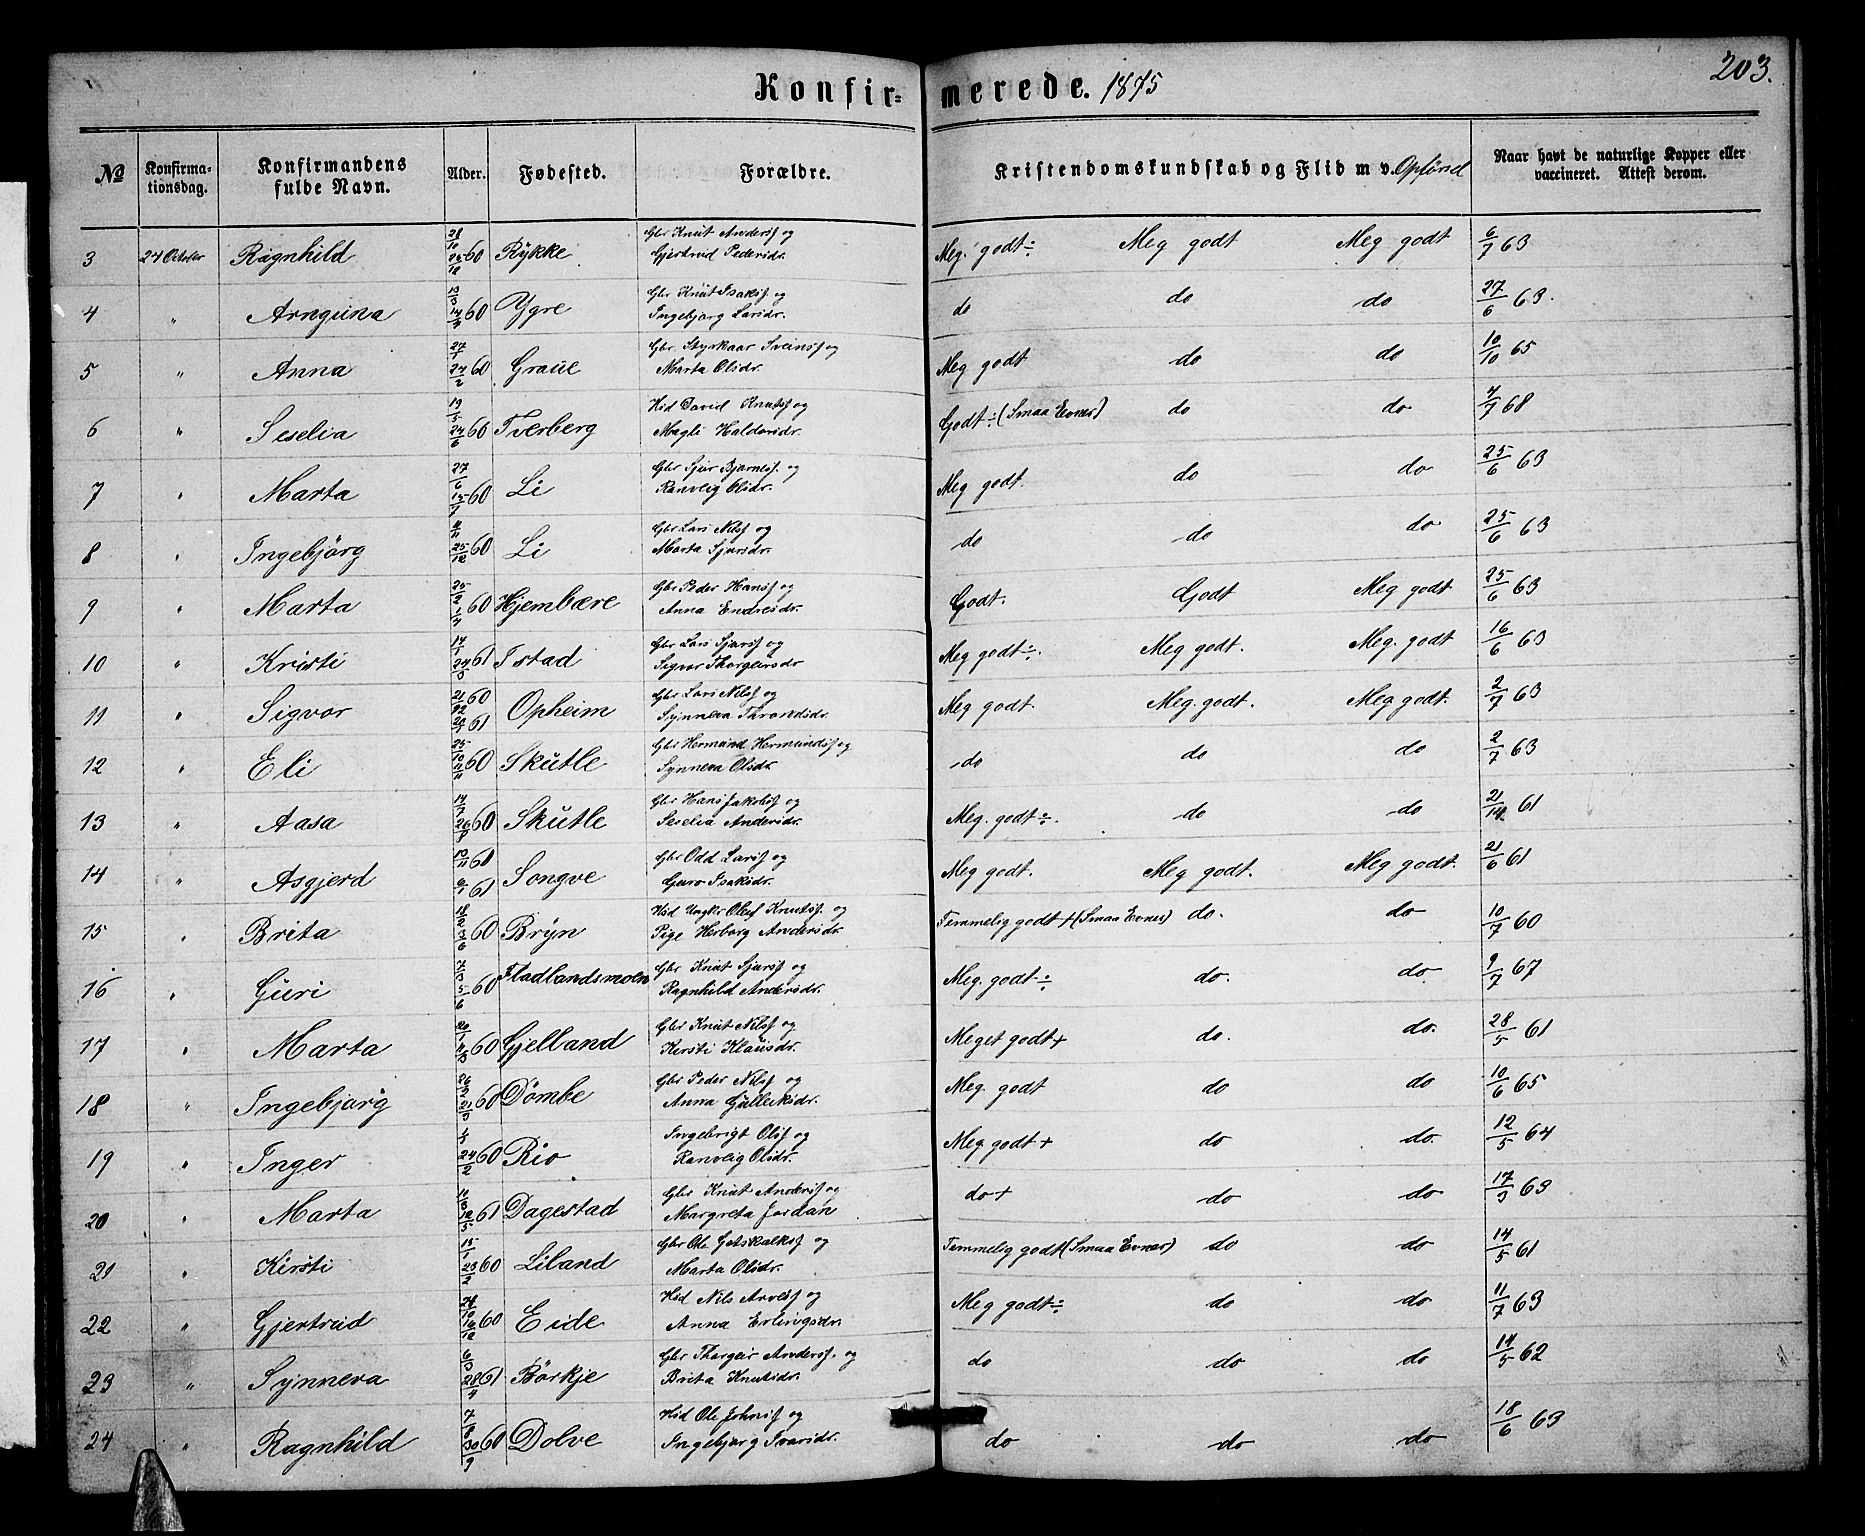 203.
Konfirmerede. 1875
No
Konfirmationsdag.
Konfirmandens fulde Navn.
Alder.
Fødested.
Forældre.
Kristendomskundskab og Flid m v. Opførsel
Naar havt de naturlige Kopper eller vaccineret. Attest derom.
3 24 October Ragnhild 28/10 25/12 60 Rykke Gbr Knut Andersf og Gjertrud Pedersdr. Meg. godt ÷ Meg godt Meg godt 6/7 63
4 " Arnguna 60 Ygre Gbr Knut Isaksf og Ingebjorg Larsdr. do do do 27/6 63.
5 " Anna 27/1 24/2 60 Graue Gbr. Styrkaar Sveinsf og Marta Olsdr. Meg godt do do 10/10 65
6 " Seselia 19/5 24/6 60 Tverberg Hsd David Knutsf og Magli Haldorsdr. Godt ÷ (Smaa Evner) do do 7/7 68
7 " Marta 27/6 15/7 60 Li Gbr Sjur Bjarnesf. og Ranveig Olsdr. Meg godt. do do 25/6 63
8 " Ingebjörg 25/12 60 Li Gbr Lars Nilsf og Marta Sjursdr. do do do 25/6 63
9 " Marta 25/2 1/4 60 Hjembære Gbr Peder Hansf og Anna Endresdr. Godt. Godt Meg godt 25/6 63
10 " Kristi 61 Istad Gbr Lars Sjursf og Sigvor Thorgeirsdr Meg godt ÷. Meg godt. Meg. godt 16/6 63
11 " Sigvor 21/12 60 61 Opheim Gbr Lars Nilsf og Synneva Throndsdr. Meg godt. Meg. godt. Meg. godt. 2/7 63
12 " Eli 25/10 11/11 60 Skutle Gbr Hermund Hermundsf og Synneva Olsdr. do do do 2/7 63
13 " Aasa 14/7 26/8 60 Skutle Gbr Hans Jakobsf og Seselia Andersdr. Meg. godt ÷. do do 61
14 " Asgjerd 60 6/1 61 Songve Gbr Odd Larsf og Guro Isaksdr. Meg godt. Meg godt. Meg godt. 21/6 61
15 " Brita 18/2 3/6 60 Bryn Hsd Ungkr Oluf Knutsf. og Pige Herborg Andersdr. Temmelig godt + (Smaa Evner) do. do 10/7 60
16 " Guri 5/6 60 Fladlandsmoen Gbr Knut Sjursf og Ragnhild Andersdr. Meg. godt ÷ do. do. 9/7 67
17 " Marta 20/1 60 Gjelland Gbr Knut Nilsf og Kirsti Klausdr. Meget godt + do. do. 28/5 61
18 " Ingebjorg 60 Dömbe Gbr Peder Nilsf og Anna Gulleiksdr. Meg. godt do do 10/6 65
19 " Inger 24/2 60 Rio Ingebrigt Olsf og Ranveig Olsdr. Meg. godt + do do. 12/5 64
20 " Marta 10/3 12/5 61 Dagestad Gbr Knut Andersf og Margreta Jordan do + do do 17/9 63
21 " Kirsti 15/1 23/2 60 Liland Gbr Ole Gotskalksf og Marta Olsdr. Temmelig godt (Smaa Evner) do do 14/5 61
22 " Gjertrud 60 Eide Hsd Nils Arvesf og Anna Erlingsdr. Meg godt ÷ do do 11/7 63
23 " Synneva 6/3 28/4 61 Börkje Gbr Thorgeir Andersf. og Brita Knutsdr. do do do 14/5 62
24 " Ragnhild 7/8 30/9 60 Dolve Hsd Ole Johnsf og Ingebjorg Ivarsdr. do do do 18/6 63